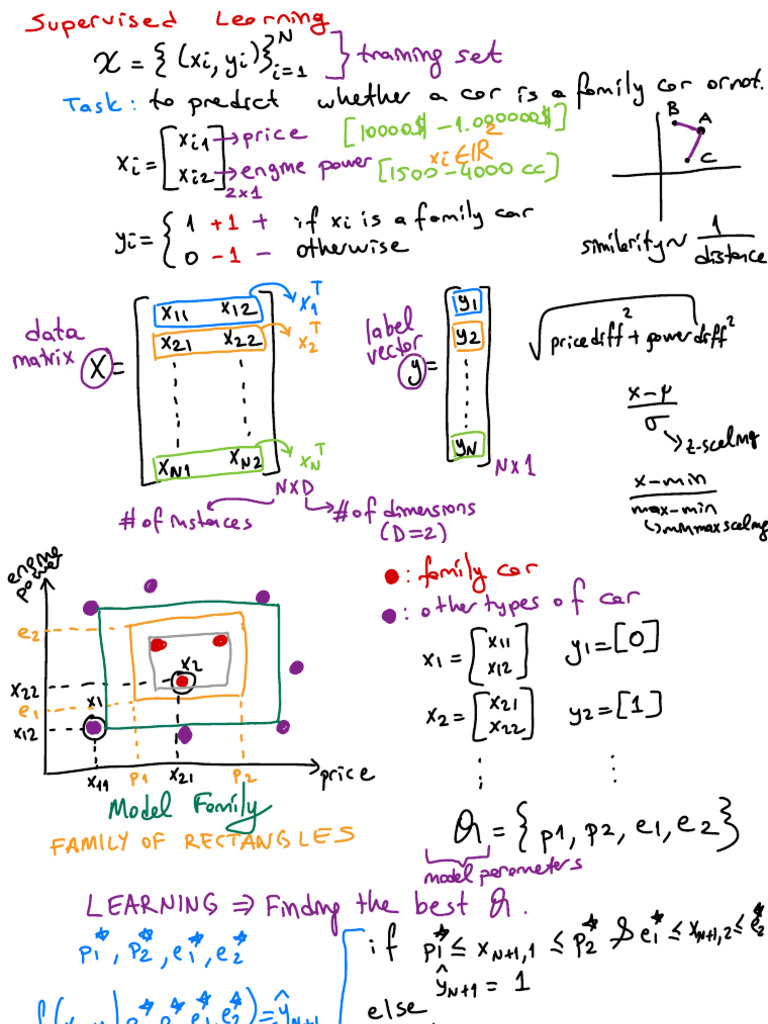 Supervised Learning
X = {(xi, yi)}ᴺi=1 } training set
Task: to predict whether a car is a family car or not.
xi = [xi1 → price [10000$ – 1.000000$]
xi2] → engine power [1500 – 4000 cc]
2x1
xi ∈ IR²
B A
C
yi = { 1 +1 + if xi is a family car
0 -1 - otherwise
similarity ~ 1 / distance
data matrix X = [x11 x12 → x1ᵀ
x21 x22 → x2ᵀ
xN1 xN2 → xNᵀ] NxD
# of instances
# of dimensions
(D=2)
label vector y = [y1
y2
yN] Nx1
√(price diff² + power diff²)
x-μ / σ → z-scaling
x-min / max-min
↳ minmax scaling
engine power
e2
x22
e1
x12
x1
x2
x11 p1 x21 p2 price
Model Family
FAMILY OF RECTANGLES
: family car
: other types of car
x1 = [x11
x12] y1 = [0]
x2 = [x21
x22] y2 = [1]
= {p1, p2, e1, e2}
model parameters
LEARNING ⇒ Finding the best
p1*, p2*, e1*, e2*
if p1* ≤ xN+1,1 ≤ p2* & e1* ≤ xN+1,2 ≤ e2*
ŷN+1 = 1
else
= ŷN+1